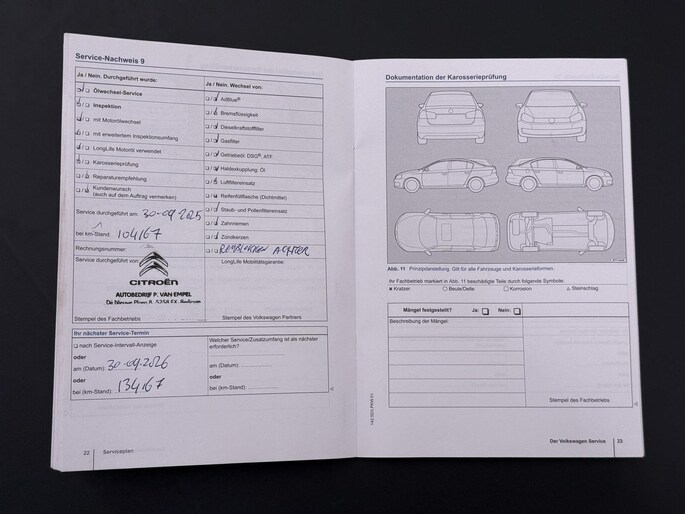 Service-Nachweis 9
Ja / Nein. Durchgeführt wurde:
Ölwechsel-Service
Inspektion
mit Motorölwechsel
mit erweitertem Inspektionsumfang
LongLife Motoröl verwendet
Karosserieprüfung
Reparaturempfehlung
Kundenwunsch
(auch auf dem Auftrag vermerken)
Service durchgeführt am: 30-09-2025
bei km-Stand: 104167
Rechnungsnummer:
Service durchgeführt von:
CITROËN
AUTOBEDRIJF P. VAN EMPEL
Stempel des Fachbetriebs
Ja / Nein. Wechsel von:
AdBlue®
Bremsflüssigkeit
Dieselkraftstofffilter
Gasfilter
Getriebeöl: DSG®, ATF
Haldexkupplung: Öl
Luftfiltereinsatz
Reifenfüllflasche (Dichtmittel)
Staub- und Pollenfiltereinsatz
Zahnriemen
Zündkerzen
REMBLOKKEN ACHTER
LongLife Mobilitätsgarantie:
Stempel des Volkswagen Partners
Ihr nächster Service-Termin
nach Service-Intervall-Anzeige
oder
am (Datum): 30-09-2026
oder
bei (km-Stand): 134167
Welcher Service/Zusatzumfang ist als nächster
erforderlich?
am (Datum):
oder
bei (km-Stand):
22 Serviceplan
Dokumentation der Karosserieprüfung
Abb. 11 Prinzipdarstellung. Gilt für alle Fahrzeuge und Karosserieformen.
Ihr Fachbetrieb markiert in Abb. 11 beschädigte Teile durch folgende Symbole:
× Kratzer ○ Beule/Delle □ Korrosion △ Steinschlag
Mängel festgestellt? Ja: Nein:
Beschreibung der Mängel:
Stempel des Fachbetriebs
Der Volkswagen Service 23